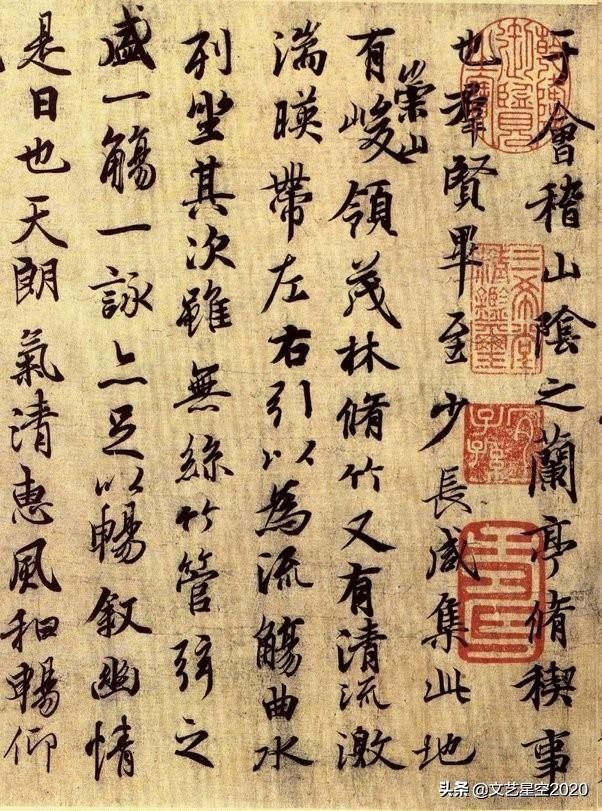 于會稽山陰之蘭亭脩稧事
也羣賢畢至少長咸集此地
有崇山峻領茂林脩竹又有清流激
湍暎帶左右引以為流觴曲水
列坐其次雖無絲竹管弦之
盛一觴一詠亦足以暢敘幽情
是日也天朗氣清惠風和暢仰
乾隆御覽之寶
三希堂精鑑璽
宜子孫
头条 @文艺星空2020